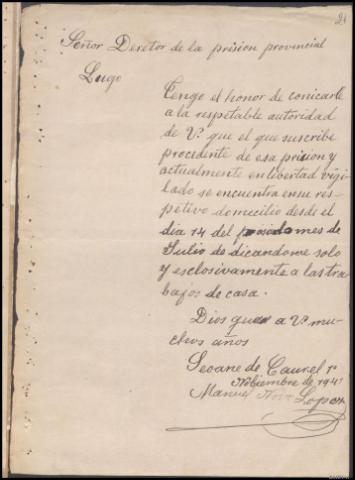 21
Señor Deretor de la prision provincial
Lugo
Tengo el honor de conicarle
a la respetable autoridad
de Vª. que el que suscribe
procedente de esa prision y
actualmente en libertad vigi
lado se encuentra ensu res
petivo domecilio desde el
dia 14 del pasado mes de
Julio de dicandome solo
y esclosivamente a las tra
bajos de casa.
Dios que a Vª. mu
chos años
Seoane de Caurel 1º
Nobiembre de 1941
Manuel Lopez